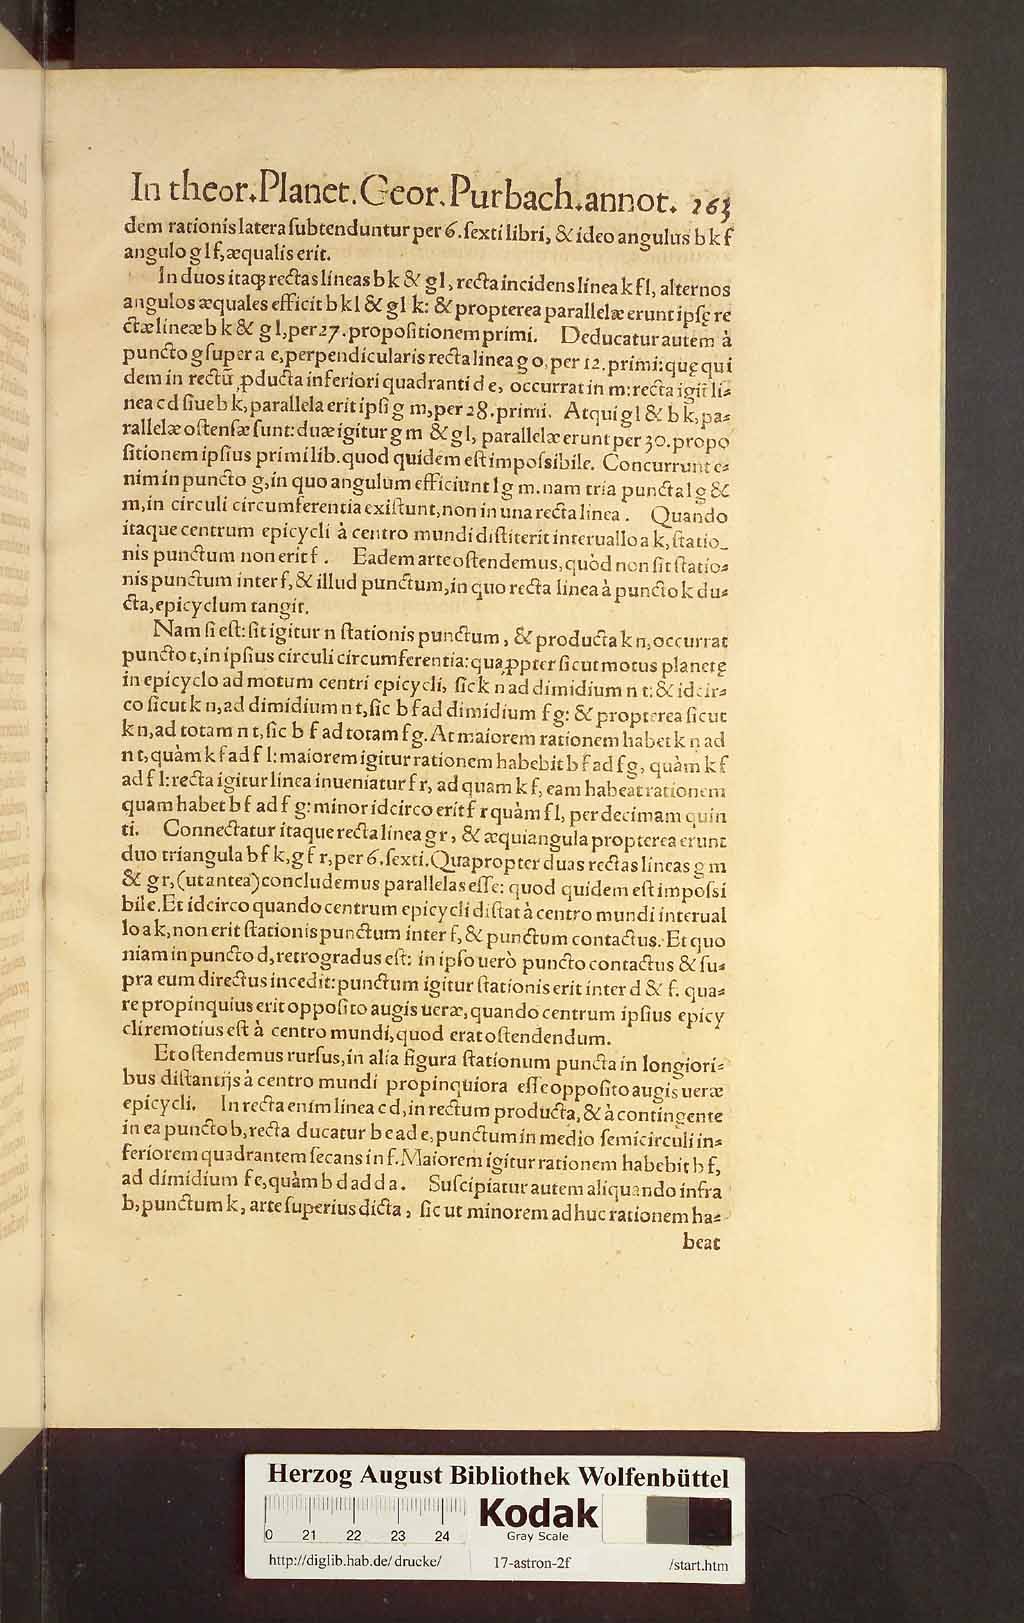 In theor.Planet.Geor.Purbach.annot. 263
dem rationis latera ſubtenduntur per 6.ſexti libri, & ideo angulus b k f
angulo g l f, æqualis erit.
In duos itaq; rectas líneas b k & g l, recta incidens línea k f l, alternos
angulos æquales efficit b k l & g l k: & propterea parallelæ erunt ipſę re
ctæ líneæ b k & g l, per 27.propoſitionem primi. Deducatur autem à
puncto g ſuper a e, perpendicularis recta linea g o, per 12.primi: quę qui
dem in rectū ꝓducta inferiori quadranti d e, occurrat in m: recta igit̃ li-
nea c d ſiue b k, parallela erit ipſi g m, per 28.primi. Atqui g l & b k, pa-
rallelæ oſtenſæ ſunt: duæ igitur g m & g l, parallelæ erunt per 30.propo
ſitionem ipſius primi lib. quod quidem eſt impoſsibile. Concurrunt e-
nim in puncto g, in quo angulum efficiunt l g m. nam tria puncta l g &
m, in circuli circumferentia exiſtunt, non in una recta linea. Quando
itaque centrum epicycli à centro mundi diſtiterit interuallo a k, ſtatio-
nis punctum non erit f. Eadem arte oſtendemus, quòd non ſit ſtatio-
nis punctum inter f, & illud punctum, in quo recta linea à puncto k du-
cta, epicyclum tangit.
Nam ſi eſt: ſit igitur n ſtationis punctum, & producta k n, occurrat
puncto t, in ipſius circuli circumferentia: quaꝓpter ſicut motus planetę
in epicyclo ad motum centri epicycli, ſic k n ad dimidium n t: & idcir-
co ſicut k n, ad dimidium n t, ſic b f ad dimidium f g: & propterea ſicut
k n, ad totam n t, ſic b f ad totam f g. At maiorem rationem habet k n ad
n t, quàm k f ad f l: maiorem igitur rationem habebit b f ad f g, quàm k f
ad f l: recta igitur linea inueniatur f r, ad quam k f, eam habeat rationem
quam habet b f ad f g: minor idcirco erit f r quàm f l, per decimam quin
ti. Connectatur itaque recta línea g r, & æquiangula propterea erunt
duo triangula b f k, g f r, per 6.ſexti. Quapropter duas rectas líneas g m
& g r, (ut antea) concludemus parallelas eſſe: quod quidem eſt impoſsi
bile. Et idcirco quando centrum epicycli diſtat à centro mundi interual
lo a k, non erit ſtationis punctum inter f, & punctum contactus. Et quo
niam in puncto d, retrogradus eſt: in ipſo uerò puncto contactus & ſu-
pra eum directus incedit: punctum igitur ſtationis erit inter d & f. qua-
re propinquius erit oppoſito augis ueræ, quando centrum ipſius epicy
cli remotius eſt à centro mundi, quod erat oſtendendum.
Et oſtendemus rurſus, in alia figura ſtationum puncta in longiori-
bus diſtantijs à centro mundi propinquiora eſſe oppoſito augis ueræ
epicycli. In recta enim línea c d, in rectum producta, & à contingente
in ea puncto b, recta ducatur b e ad e, punctum in medio ſemicirculi in-
feriorem quadrantem ſecans in f. Maiorem igitur rationem habebit b f,
ad dimidium f e, quàm b d ad d a. Suſcipiatur autem aliquando infra
b, punctum k, arte ſuperius dicta, ſic ut minorem ad huc rationem ha-
beat
Herzog August Bibliothek Wolfenbüttel
0 21 22 23 24
Kodak
Gray Scale
http://diglib.hab.de/drucke/ 17-astron-2f /start.htm